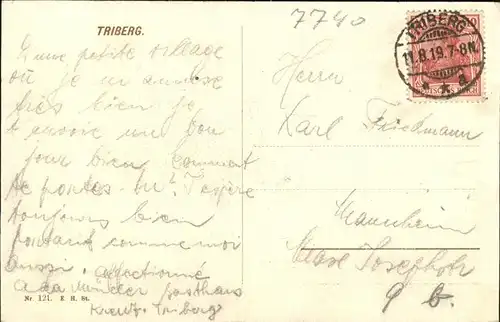 TRIBERG.
7740
TRIBERG
11.8.19.7-8N.
* a
D'une petite village
où je m'amuse
très bien je
t'envoie un bon
jour bien comment
te portes-tu? J'espère
toujours bien
portant comme moi
aussi. affectionné
Gasthaus
Triberg
Herrn
Karl Friedmann
Mannheim
9 b.
Nr. 121. E. H. St.